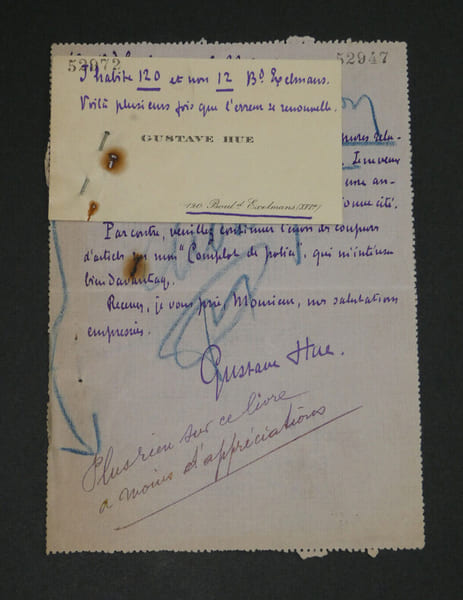 52972
52947
J'habite 120 et non 12 Bd Exelmans.
Voilà plusieurs fois que l'erreur se renouvelle.
GUSTAVE HUE
120 Bould Exelmans (XVIe)
Je ne veux
une an-
cité.
Par contre, veuillez continuer l'envoi de coupures
d'articles sur mon "Complot de police", qui m'intéresse
bien davantage.
Recevez, je vous prie Monsieur, mes salutations
empressées.
Gustave Hue.
Plus rien sur ce livre
a moins d'appréciations